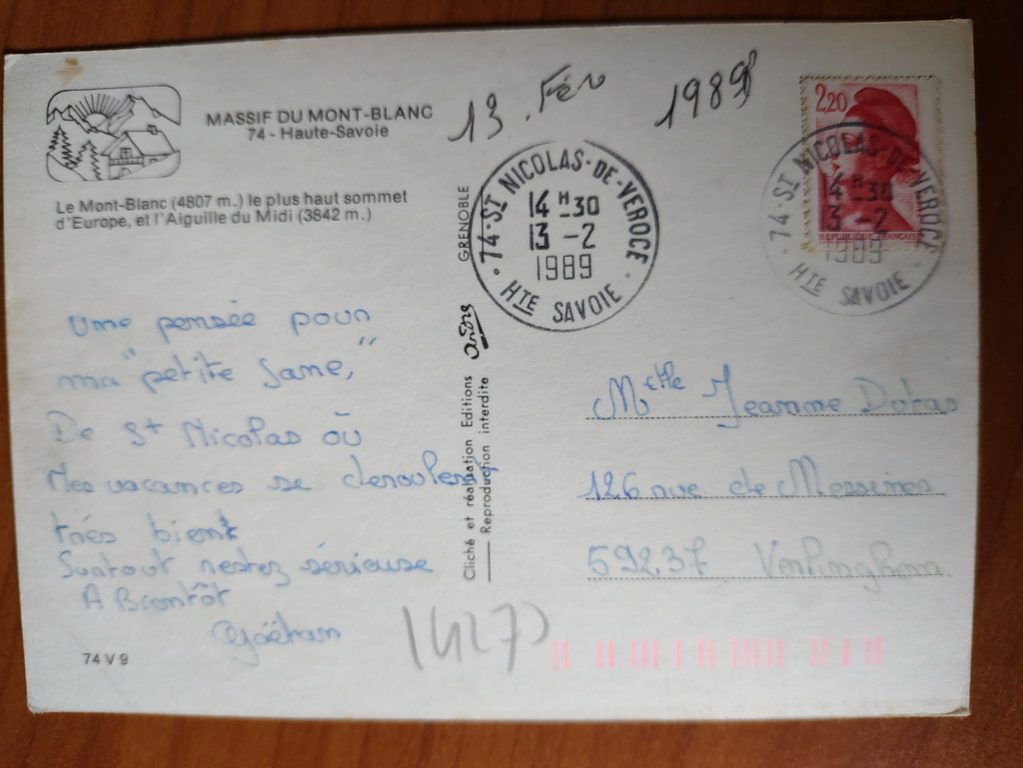 MASSIF DU MONT-BLANC
74 - Haute-Savoie
Le Mont-Blanc (4807 m.) le plus haut sommet
d'Europe, et l'Aiguille du Midi (3842 m.)
13. Fév 1989
74 - ST NICOLAS - DE - VEROCE
14 H - 30
13 - 2
1989
HTE SAVOIE
2,20
REPUBLIQUE FRANÇAISE
74 - ST NICOLAS - DE - VEROCE
14 H - 30
13 - 2
1989
HTE SAVOIE
GRENOBLE
André
Cliché et réalisation Editions
Reproduction interdite
Une pensée pour
ma "petite Jane,"
De St Nicolas où
Mes vacances se deroulent
très bient
Surtout restez sérieuse
A Bientôt
Gaëtan
Melle Jeanne
126 rue de Messines
59237 Verlinghem
74 V 9